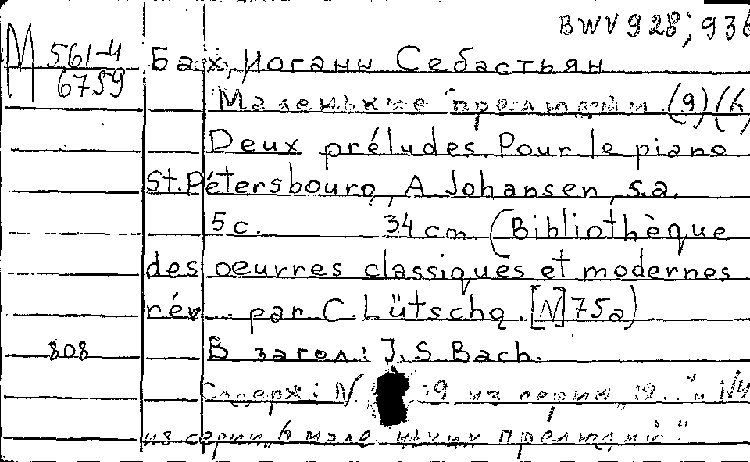 BWV 928; 936
М 561-4
6759
Бах, Иоганн Себастьян
Маленькие прелюдии. (9) (6)
Deux préludes. Pour le piano
St. Pétersbourg, A Johansen, s.a.
5 c. 34 cm (Bibliothèque
des oeuvres classiques et modernes
rév. par C Lütschg. [N] 75a)
808 В загол: J. S. Bach.
Содерж: N 9 из серии
из серии „6 прелюдий"